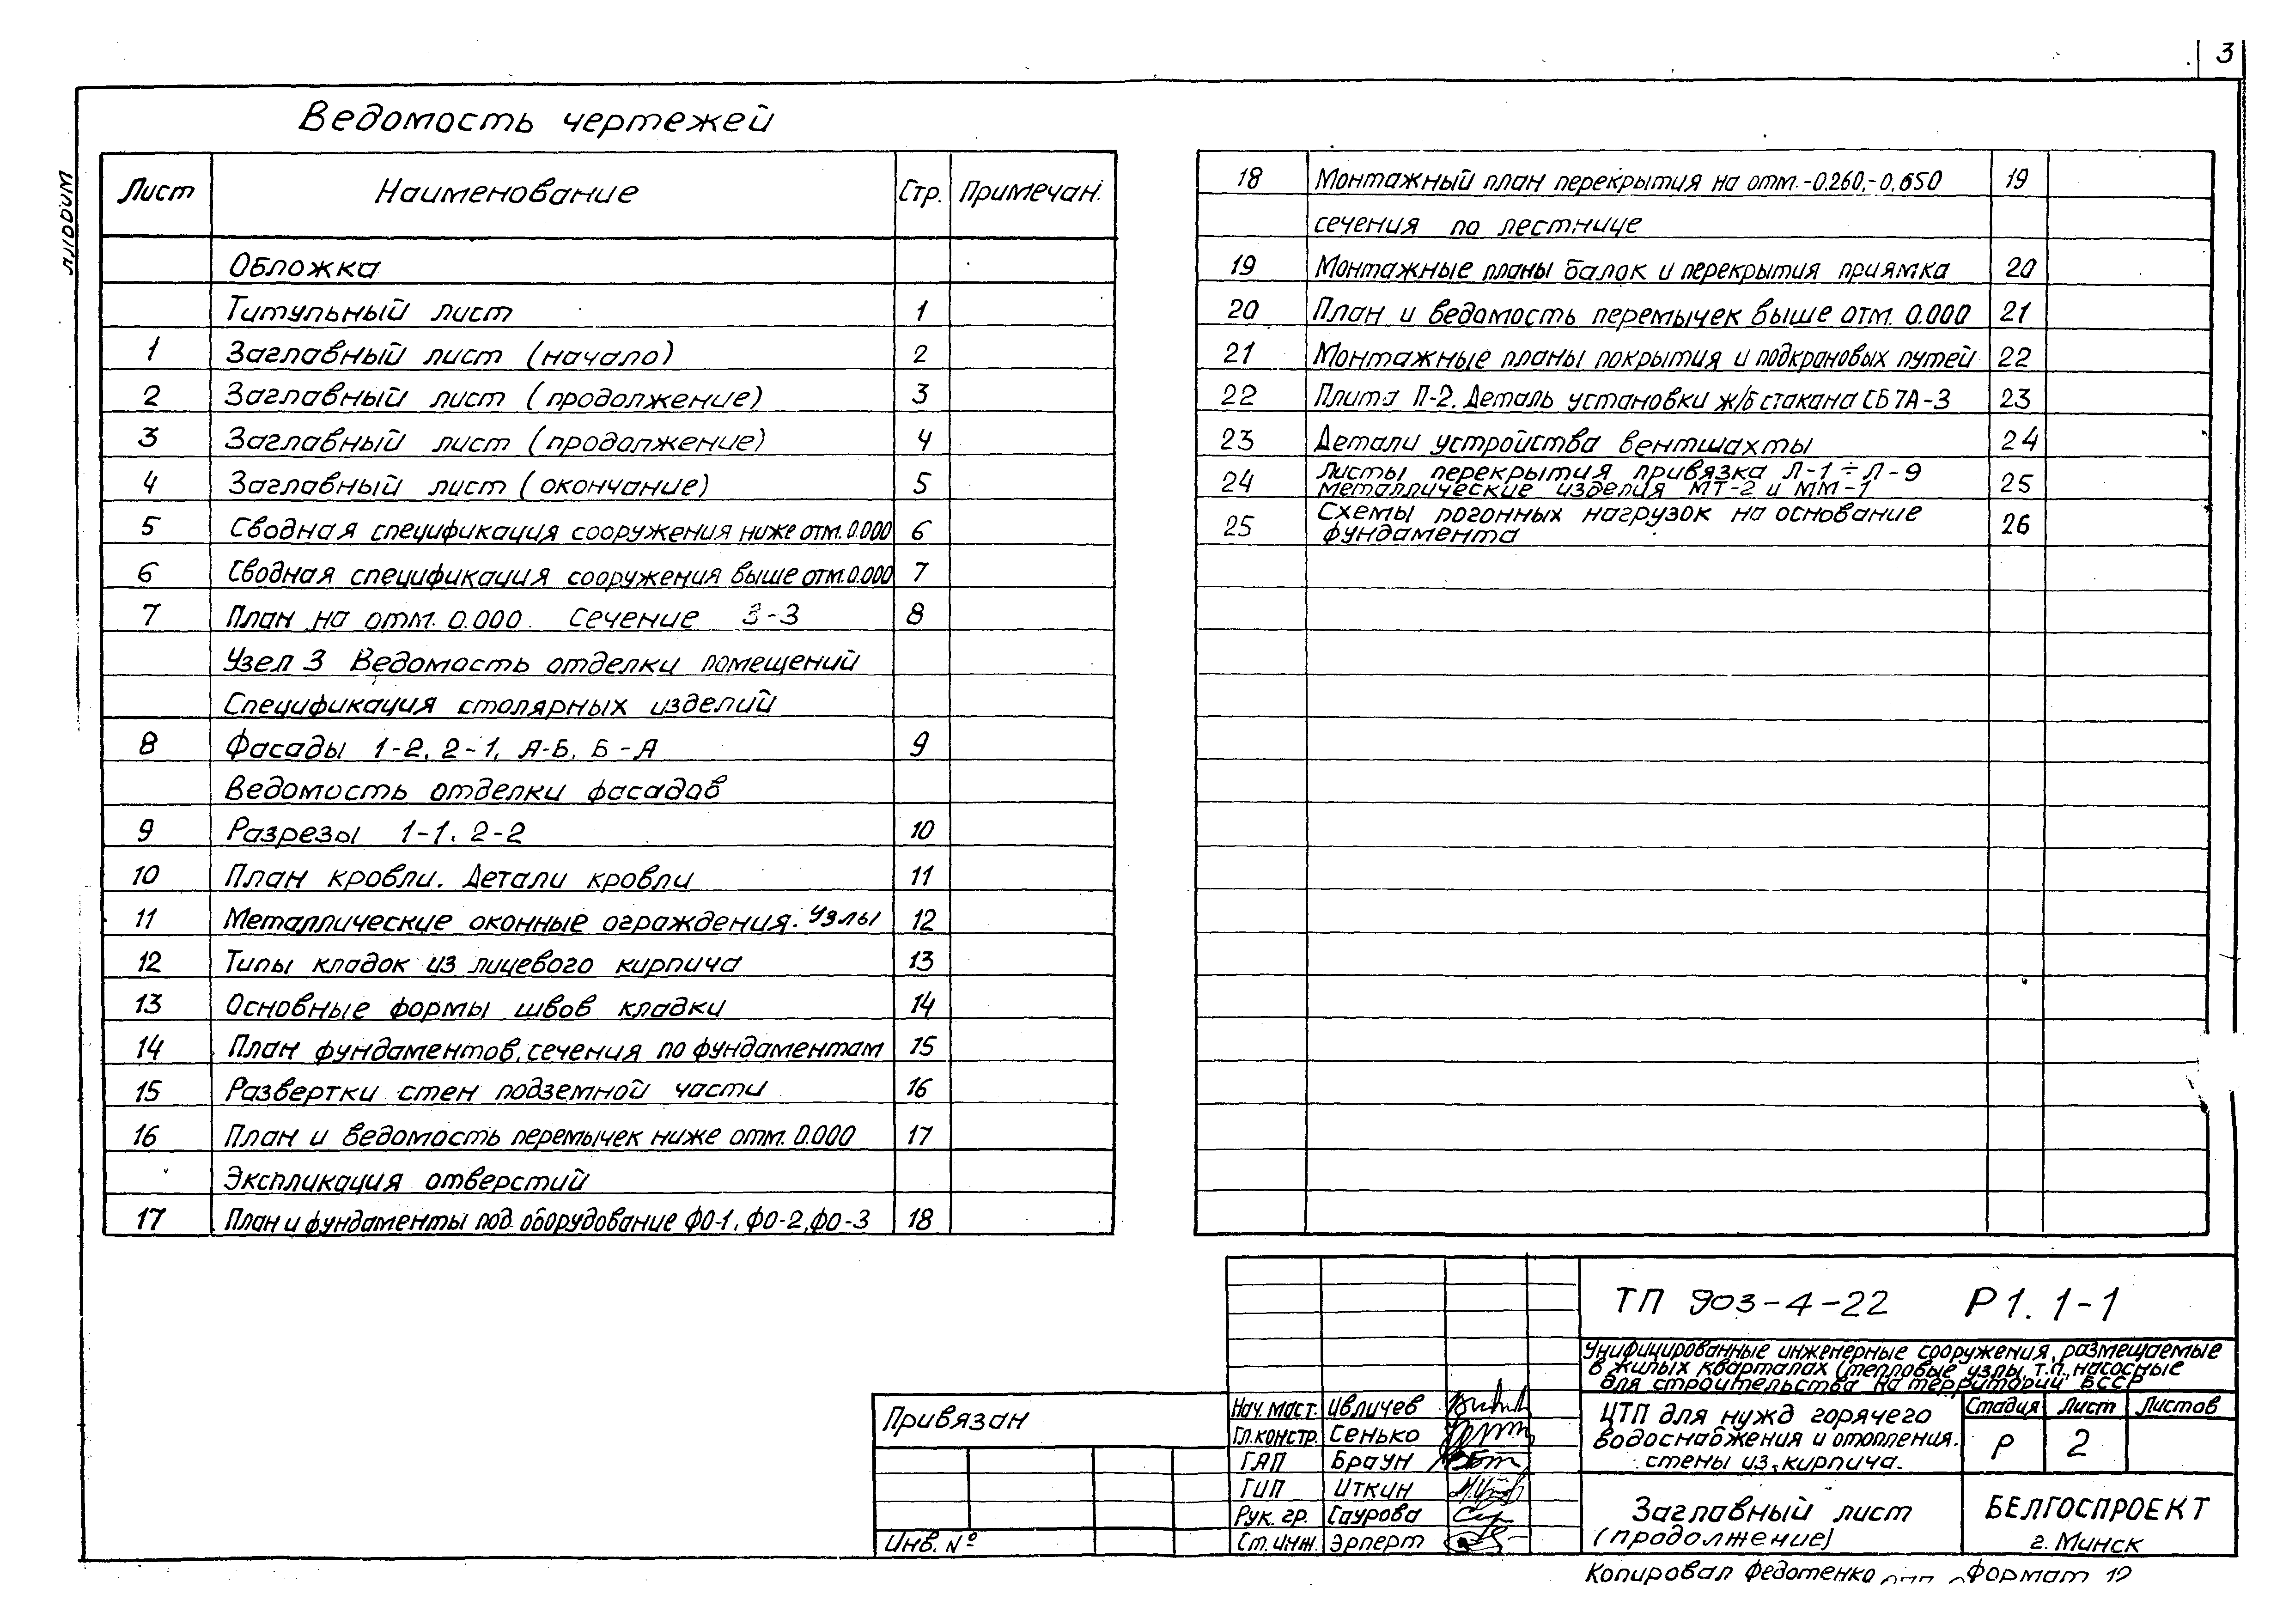 3
Ведомость чертежей
Лист Наименование Стр. Примечан.
Обложка
Титульный лист 1
1 Заглавный лист (начало) 2
2 Заглавный лист (продолжение) 3
3 Заглавный лист (продолжение) 4
4 Заглавный лист (окончание) 5
5 Сводная спецификация сооружения ниже отм. 0.000 6
6 Сводная спецификация сооружения выше отм. 0.000 7
7 План на отм. 0.000. Сечение 3-3 8
Узел 3 Ведомость отделки помещений
Спецификация столярных изделий
8 Фасады 1-2, 2-1, А-Б, Б-А 9
Ведомость отделки фасадов
9 Разрезы 1-1. 2-2 10
10 План кровли. Детали кровли 11
11 Металлические оконные ограждения. Узлы 12
12 Типы кладок из лицевого кирпича 13
13 Основные формы швов кладки 14
14 План фундаментов, сечения по фундаментам 15
15 Развертки стен подземной части 16
16 План и ведомость перемычек ниже отм. 0.000 17
Экспликация отверстий
17 План и фундаменты под оборудование ФО-1, ФО-2, ФО-3 18
18 Монтажный план перекрытия на отм. -0.260, -0.650 19
сечения по лестнице
19 Монтажные планы балок и перекрытия приямка 20
20 План и ведомость перемычек выше отм. 0.000 21
21 Монтажные планы покрытия и подкрановых путей 22
22 Плита П-2. Деталь установки ж/б стакана СБ 7А-3 23
23 Детали устройства вентшахты 24
24 Листы перекрытия привязка Л-1 ÷ Л-9 25
металлические изделия МТ-2 и ММ-1
25 Схемы погонных нагрузок на основание 26
фундамента
ТП 903-4-22 Р1. 1-1
Унифицированные инженерные сооружения, размещаемые
в жилых кварталах (тепловые узлы, т.п., насосные
для строительства на территории БССР
ЦТП для нужд горячего
водоснабжения и отопления.
стены из кирпича.
Стадия Лист Листов
Р 2
Заглавный лист
(продолжение)
БЕЛГОСПРОЕКТ
г. Минск
Нач. маст. Ивличев
Гл. констр. Сенько
ГАП Браун
ГИП Иткин
Рук. гр. Саурова
Ст. инж. Эрперт
Привязан
Инв. №
Копировал Федотенко Формат 12